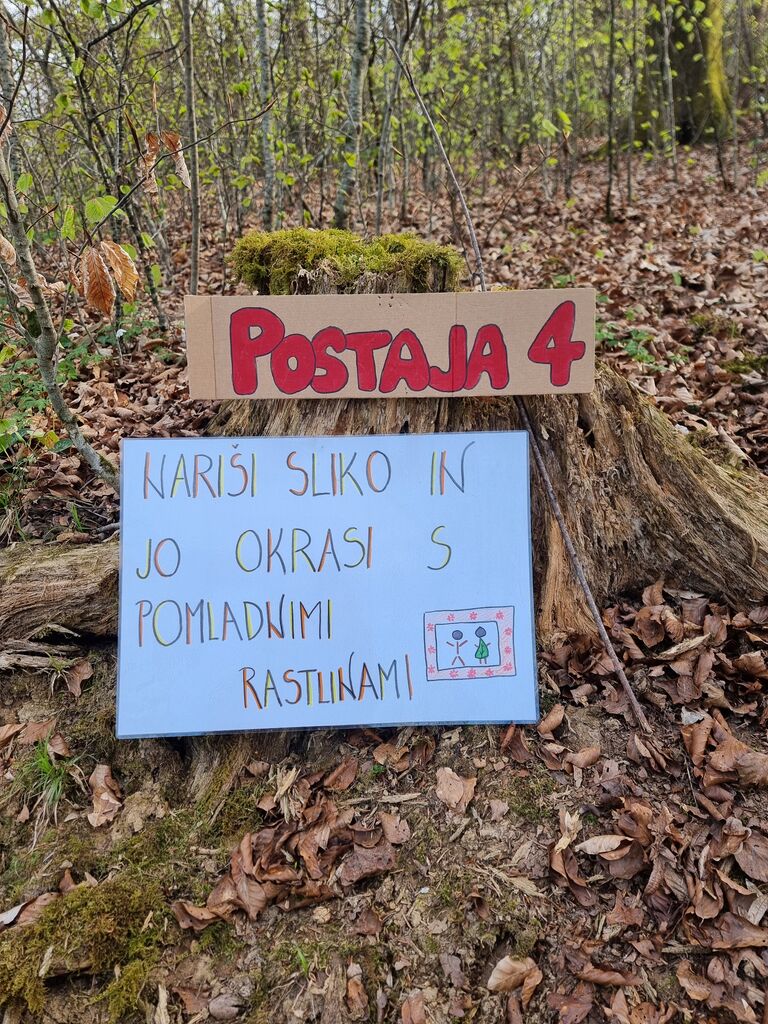 POSTAJA 4
NARIŠI SLIKO IN
JO OKRASI S
POMLADNIMI
RASTLINAMI